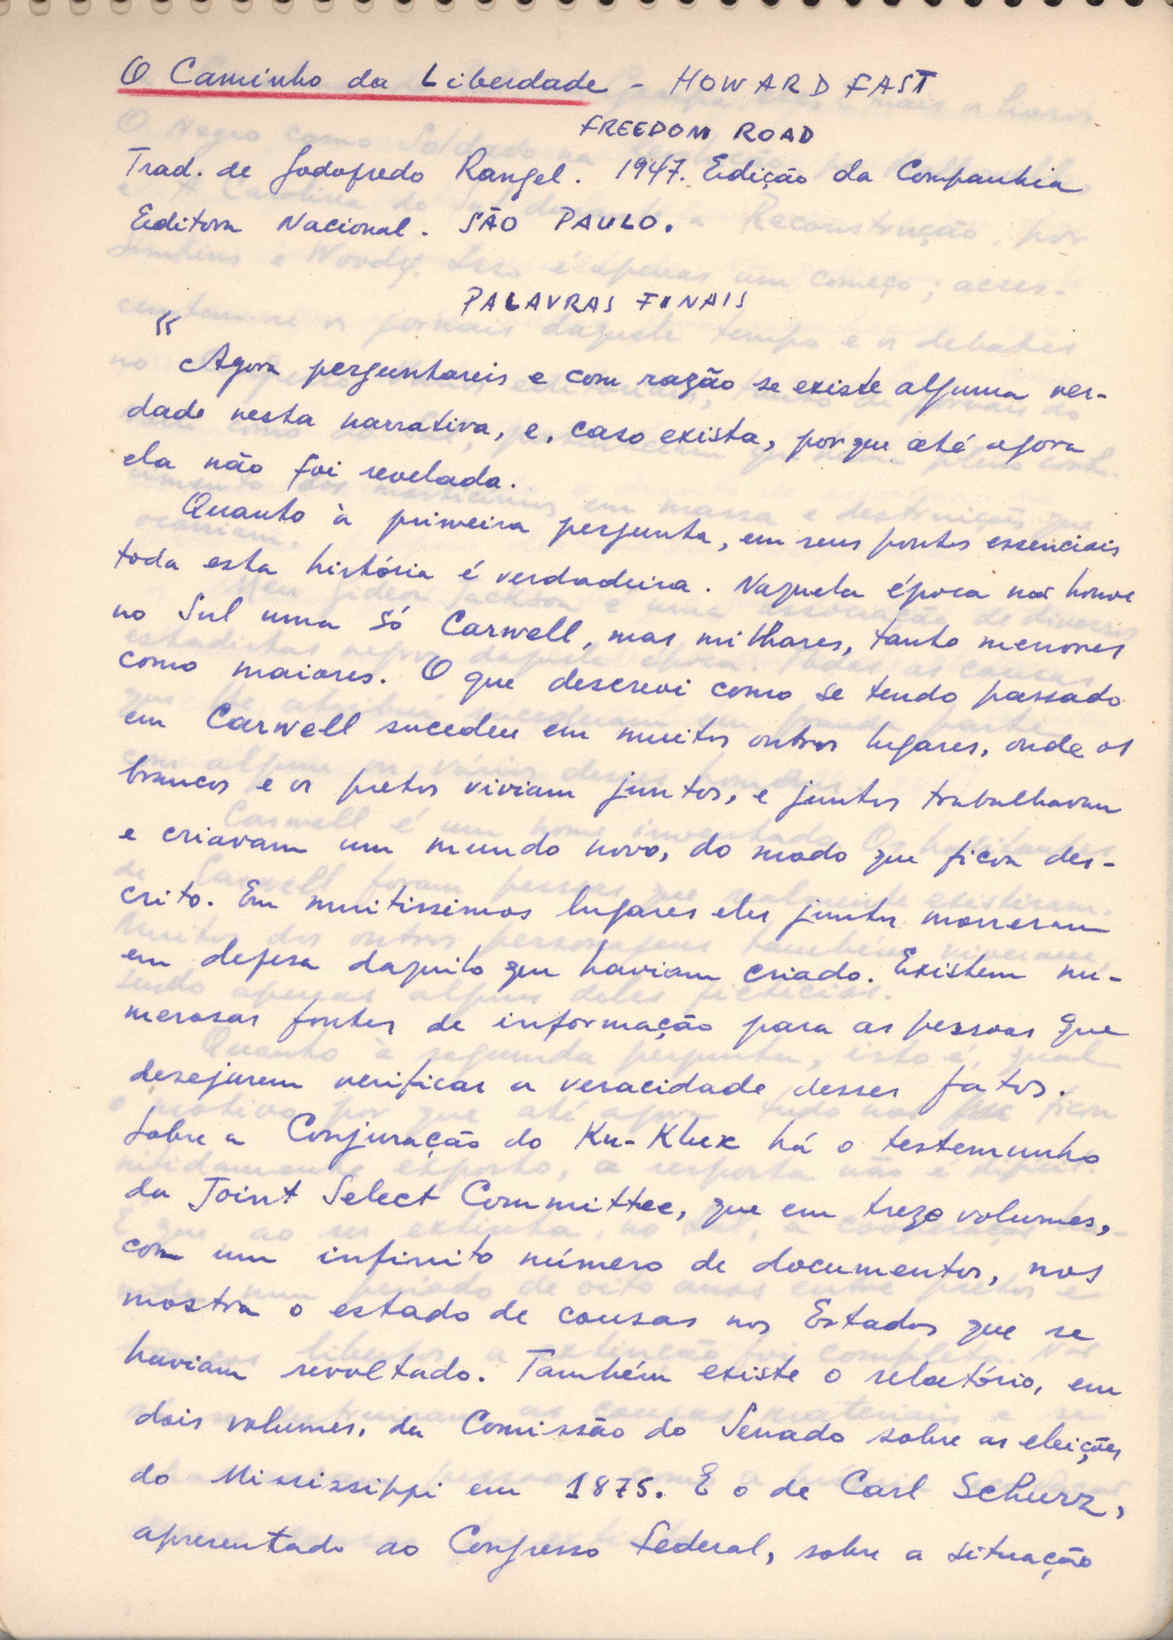 O Caminho da Liberdade - HOWARD FAST
FREEDOM ROAD
Trad. de Godofredo Rangel. 1947. Edição da Companhia
Editora Nacional. SÃO PAULO.
PALAVRAS FINAIS
"
Agora perguntareis e com razão se existe alguma ver-
dade nesta narrativa, e, caso exista, porque até agora
ela não foi revelada.
Quanto à primeira pergunta, em seus pontos essenciais
toda esta história é verdadeira. Naquela época não houve
no Sul uma só Carwell, mas milhares, tanto menores
como maiores. O que descrevi como se tendo passado
em Carwell sucedeu em muitos outros lugares, onde os
brancos e os pretos viviam juntos, e juntos trabalhavam
e criavam um mundo novo, do modo que ficou des-
crito. Em muitissimos lugares eles juntos morreram
em defesa daquilo que haviam criado. Existem nu-
merosas fontes de informação para as pessoas que
desejarem verificar a veracidade desses fatos.
Sobre a Conjuração do Ku-Klux há o testemunho
da Joint Select Committee, que em treze volumes,
com um infinito número de documentos, nos
mostra o estado de cousas nos Estados que se
haviam revoltado. Também existe o relatório, em
dois volumes, da Comissão do Senado sobre as eleições
do Mississippi em 1875. E o de Carl Schurz,
apresentado ao Congresso Federal, sobre a situação